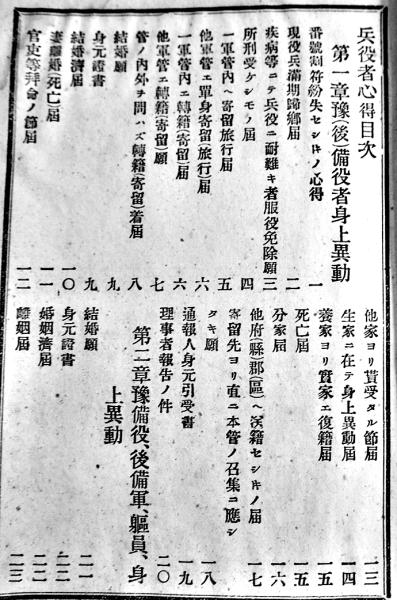 兵役者心得目次
第一章豫(後)備役者身上異動
番號割符紛失セシキノ心得 一
現役兵滿期歸鄕屆 二
疾病等ニテ兵役ニ耐難キ者服役免除願 三
所刑受ケシモノ屆 四
一軍管內ヘ寄留旅行屆 五
他軍管エ單身寄留(旅行)屆 六
一軍管內エ轉籍(寄留)屆 六
他軍管エ轉籍(寄留)屆 七
管ノ內外ヲ問ハズ轉籍(寄留)着屆 八
結婚願 九
身元證書 九
結婚濟屆 一〇
妻離婚(死亡)屆 一一
官吏等拜命ノ節屆 一二
他家ヨリ貰受タル節屆 一三
生家ニ在テ身上異動屆 一四
養家ヨリ實家エ復籍屆 一五
死亡屆 一五
分家屆 一六
他府(縣)郡(區)ヘ送籍セシキノ屆 一七
寄留先ヨリ直ニ本管ノ召集ニ應シ
タキ願 一八
通報人身元引受書 一九
理事者報告ノ件 二〇
第二章豫備役、後備軍、軀員、身
上異動
結婚願 二一
身元證書 二二
婚姻濟屆 二二
離姻屆 二三